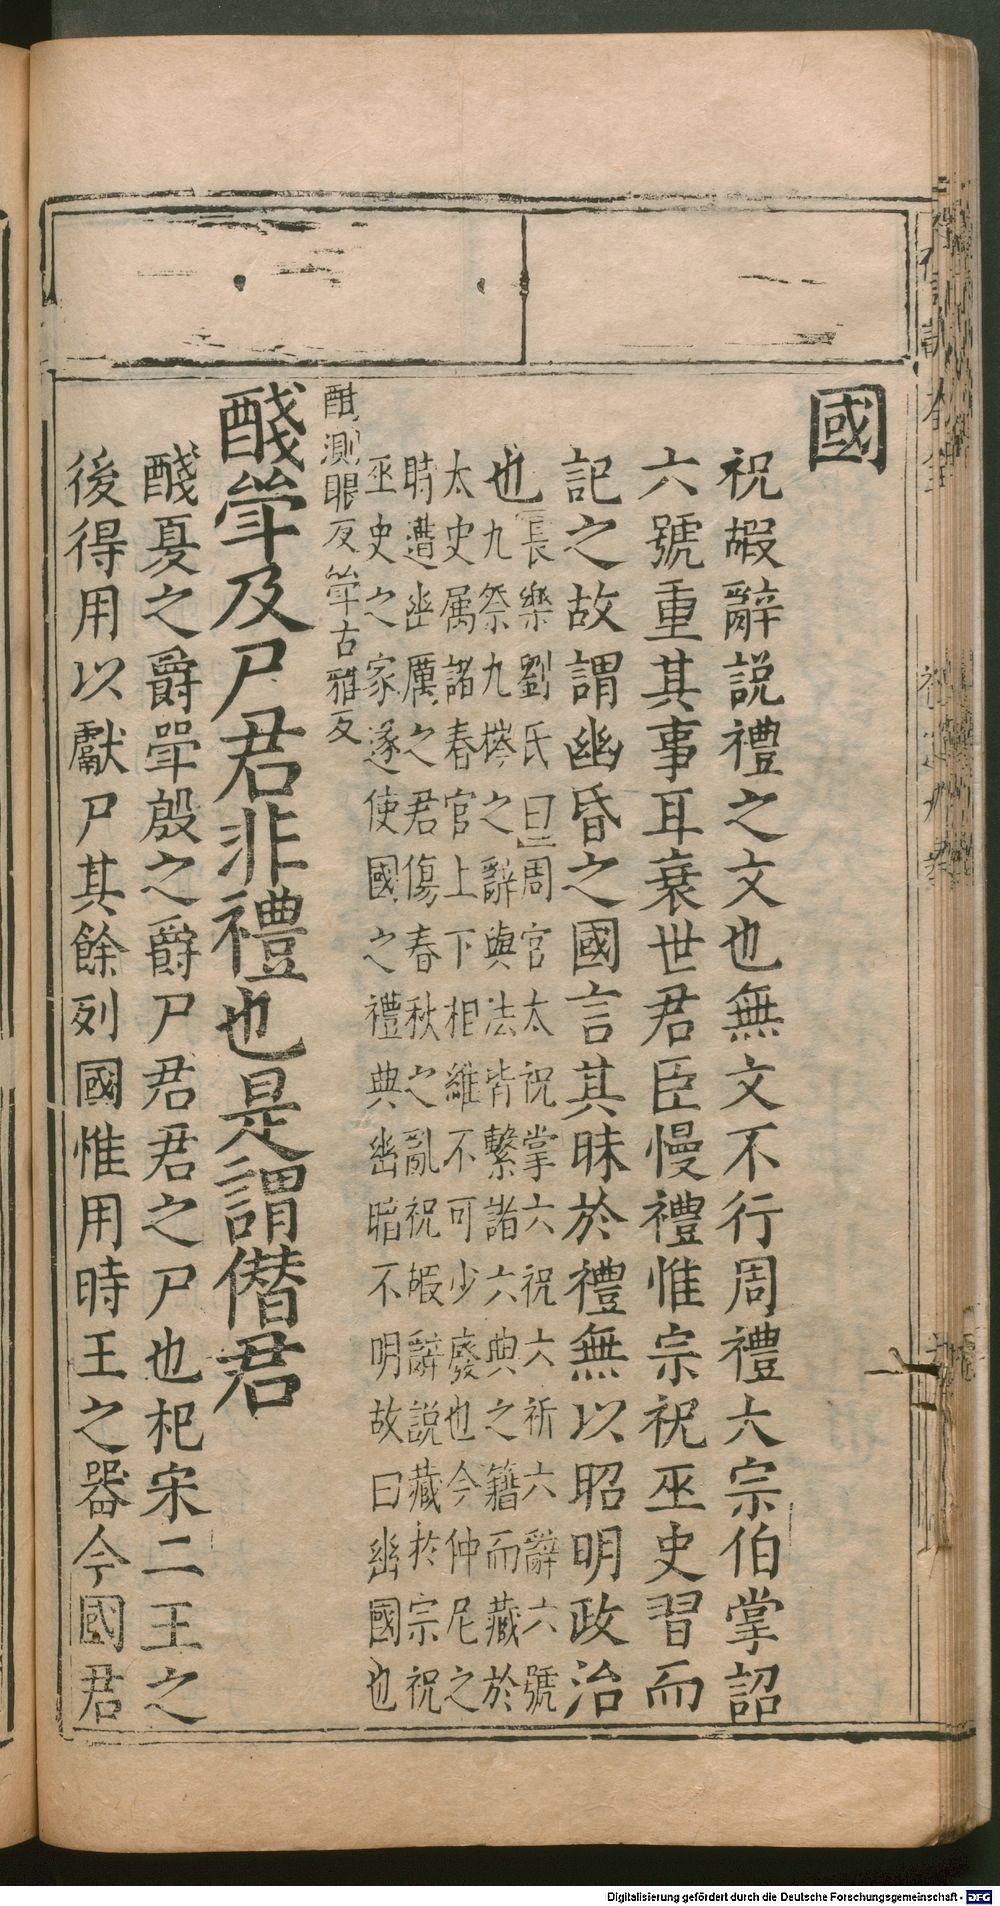 國
祝嘏辭説禮之文也無文不行周禮大宗伯掌詔
六號重其事耳衰世君臣慢禮惟宗祝巫史習而
記之故謂幽昏之國言其昧於禮無以昭明政治
也
長樂劉氏曰周官太祝掌六祝六祈六辭六號
九祭九𢷎之辭與法皆繫諸六典之籍而藏於
太史属諸春官上下相維不可少廢也今仲尼之
時遭幽厲之君傷春秋之亂祝嘏辭説藏扵宗祝
巫史之家遂使國之禮典幽暗不明故曰幽國也
醆測眼反斝古雅反
醆斝及尸君非禮也是謂僭君
醆夏之爵斝殷之爵尸君君之尸也杞宋二王之
後得用以獻尸其餘列國惟用時王之器今國君
Digitalisierung gefördert durch die Deutsche Forschungsgemeinschaft - DFG